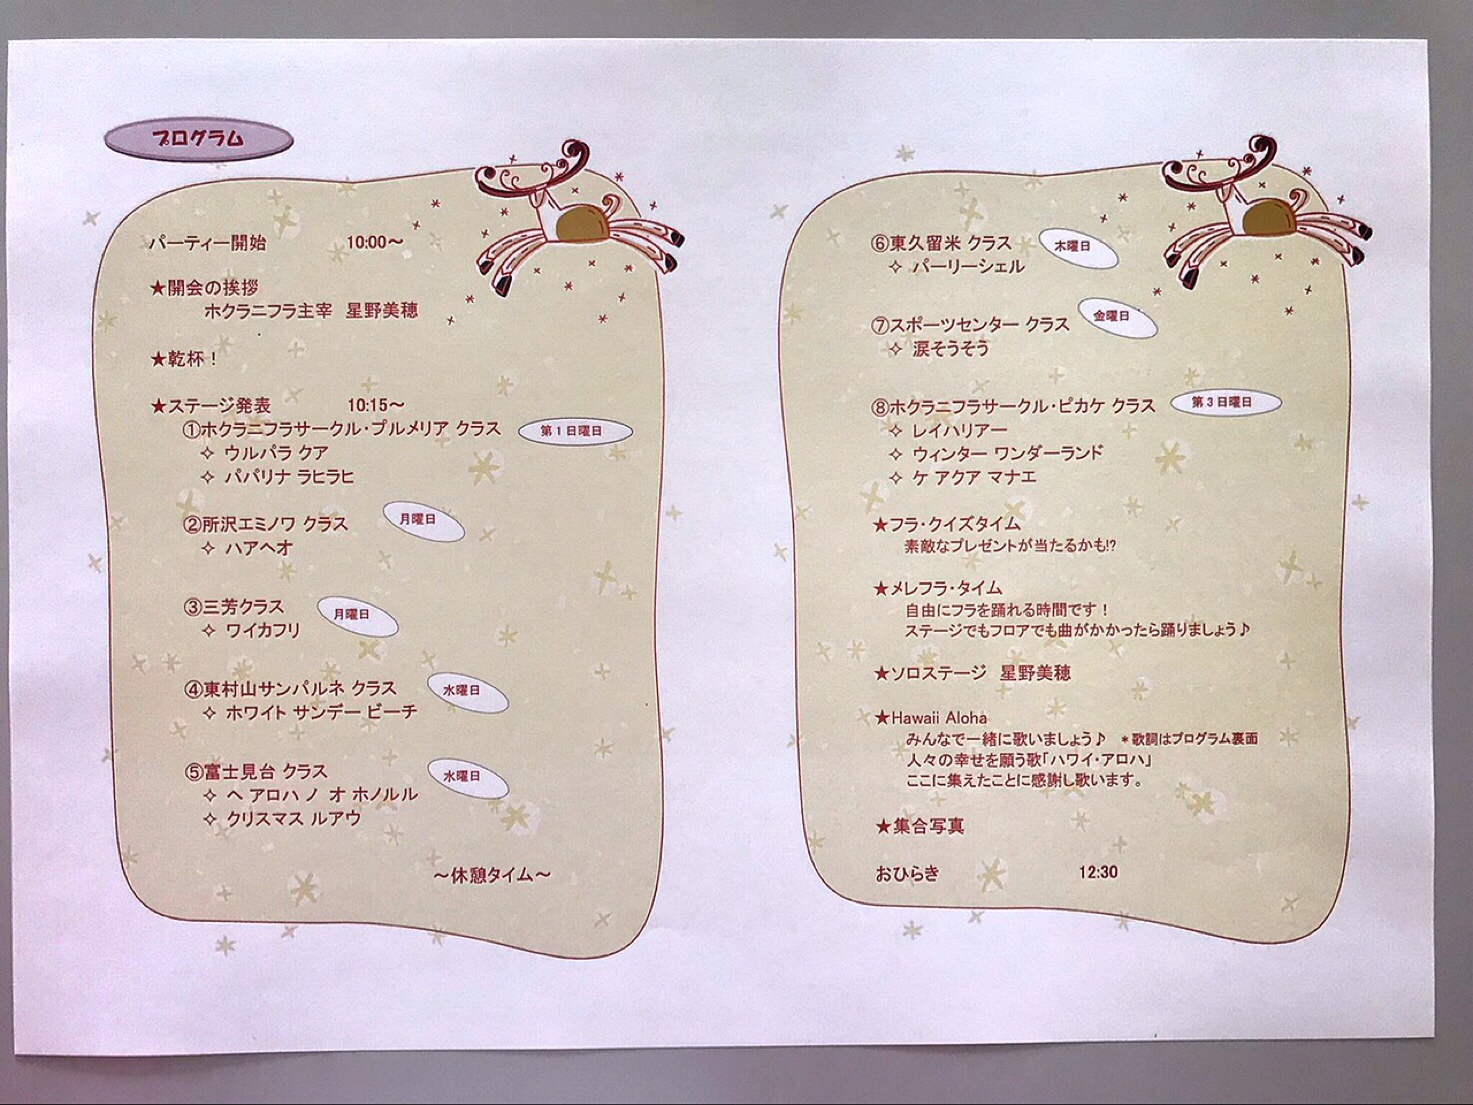 プログラム
パーティー開始 10:00～
★開会の挨拶
ホクラニフラ主宰 星野美穂
★乾杯！
★ステージ発表 10:15～
①ホクラニフラサークル・プルメリア クラス 第1日曜日
✧ ウルパラ クア
✧ パパリナ ラヒラヒ
②所沢エミノワ クラス 月曜日
✧ ハアヘオ
③三芳クラス 月曜日
✧ ワイカフリ
④東村山サンパルネ クラス 水曜日
✧ ホワイト サンデー ビーチ
⑤富士見台 クラス 水曜日
✧ ヘ アロハ ノ オ ホノルル
✧ クリスマス ルアウ
～休憩タイム～
⑥東久留米 クラス 木曜日
✧ パーリーシェル
⑦スポーツセンター クラス 金曜日
✧ 涙そうそう
⑧ホクラニフラサークル・ピカケ クラス 第3日曜日
✧ レイハリアー
✧ ウィンター ワンダーランド
✧ ケ アクア マナエ
★フラ・クイズタイム
素敵なプレゼントが当たるかも!?
★メレフラ・タイム
自由にフラを踊れる時間です！
ステージでもフロアでも曲がかかったら踊りましょう♪
★ソロステージ 星野美穂
★Hawaii Aloha
みんなで一緒に歌いましょう♪ ＊歌詞はプログラム裏面
人々の幸せを願う歌「ハワイ・アロハ」
ここに集えたことに感謝し歌います。
★集合写真
おひらき 12:30